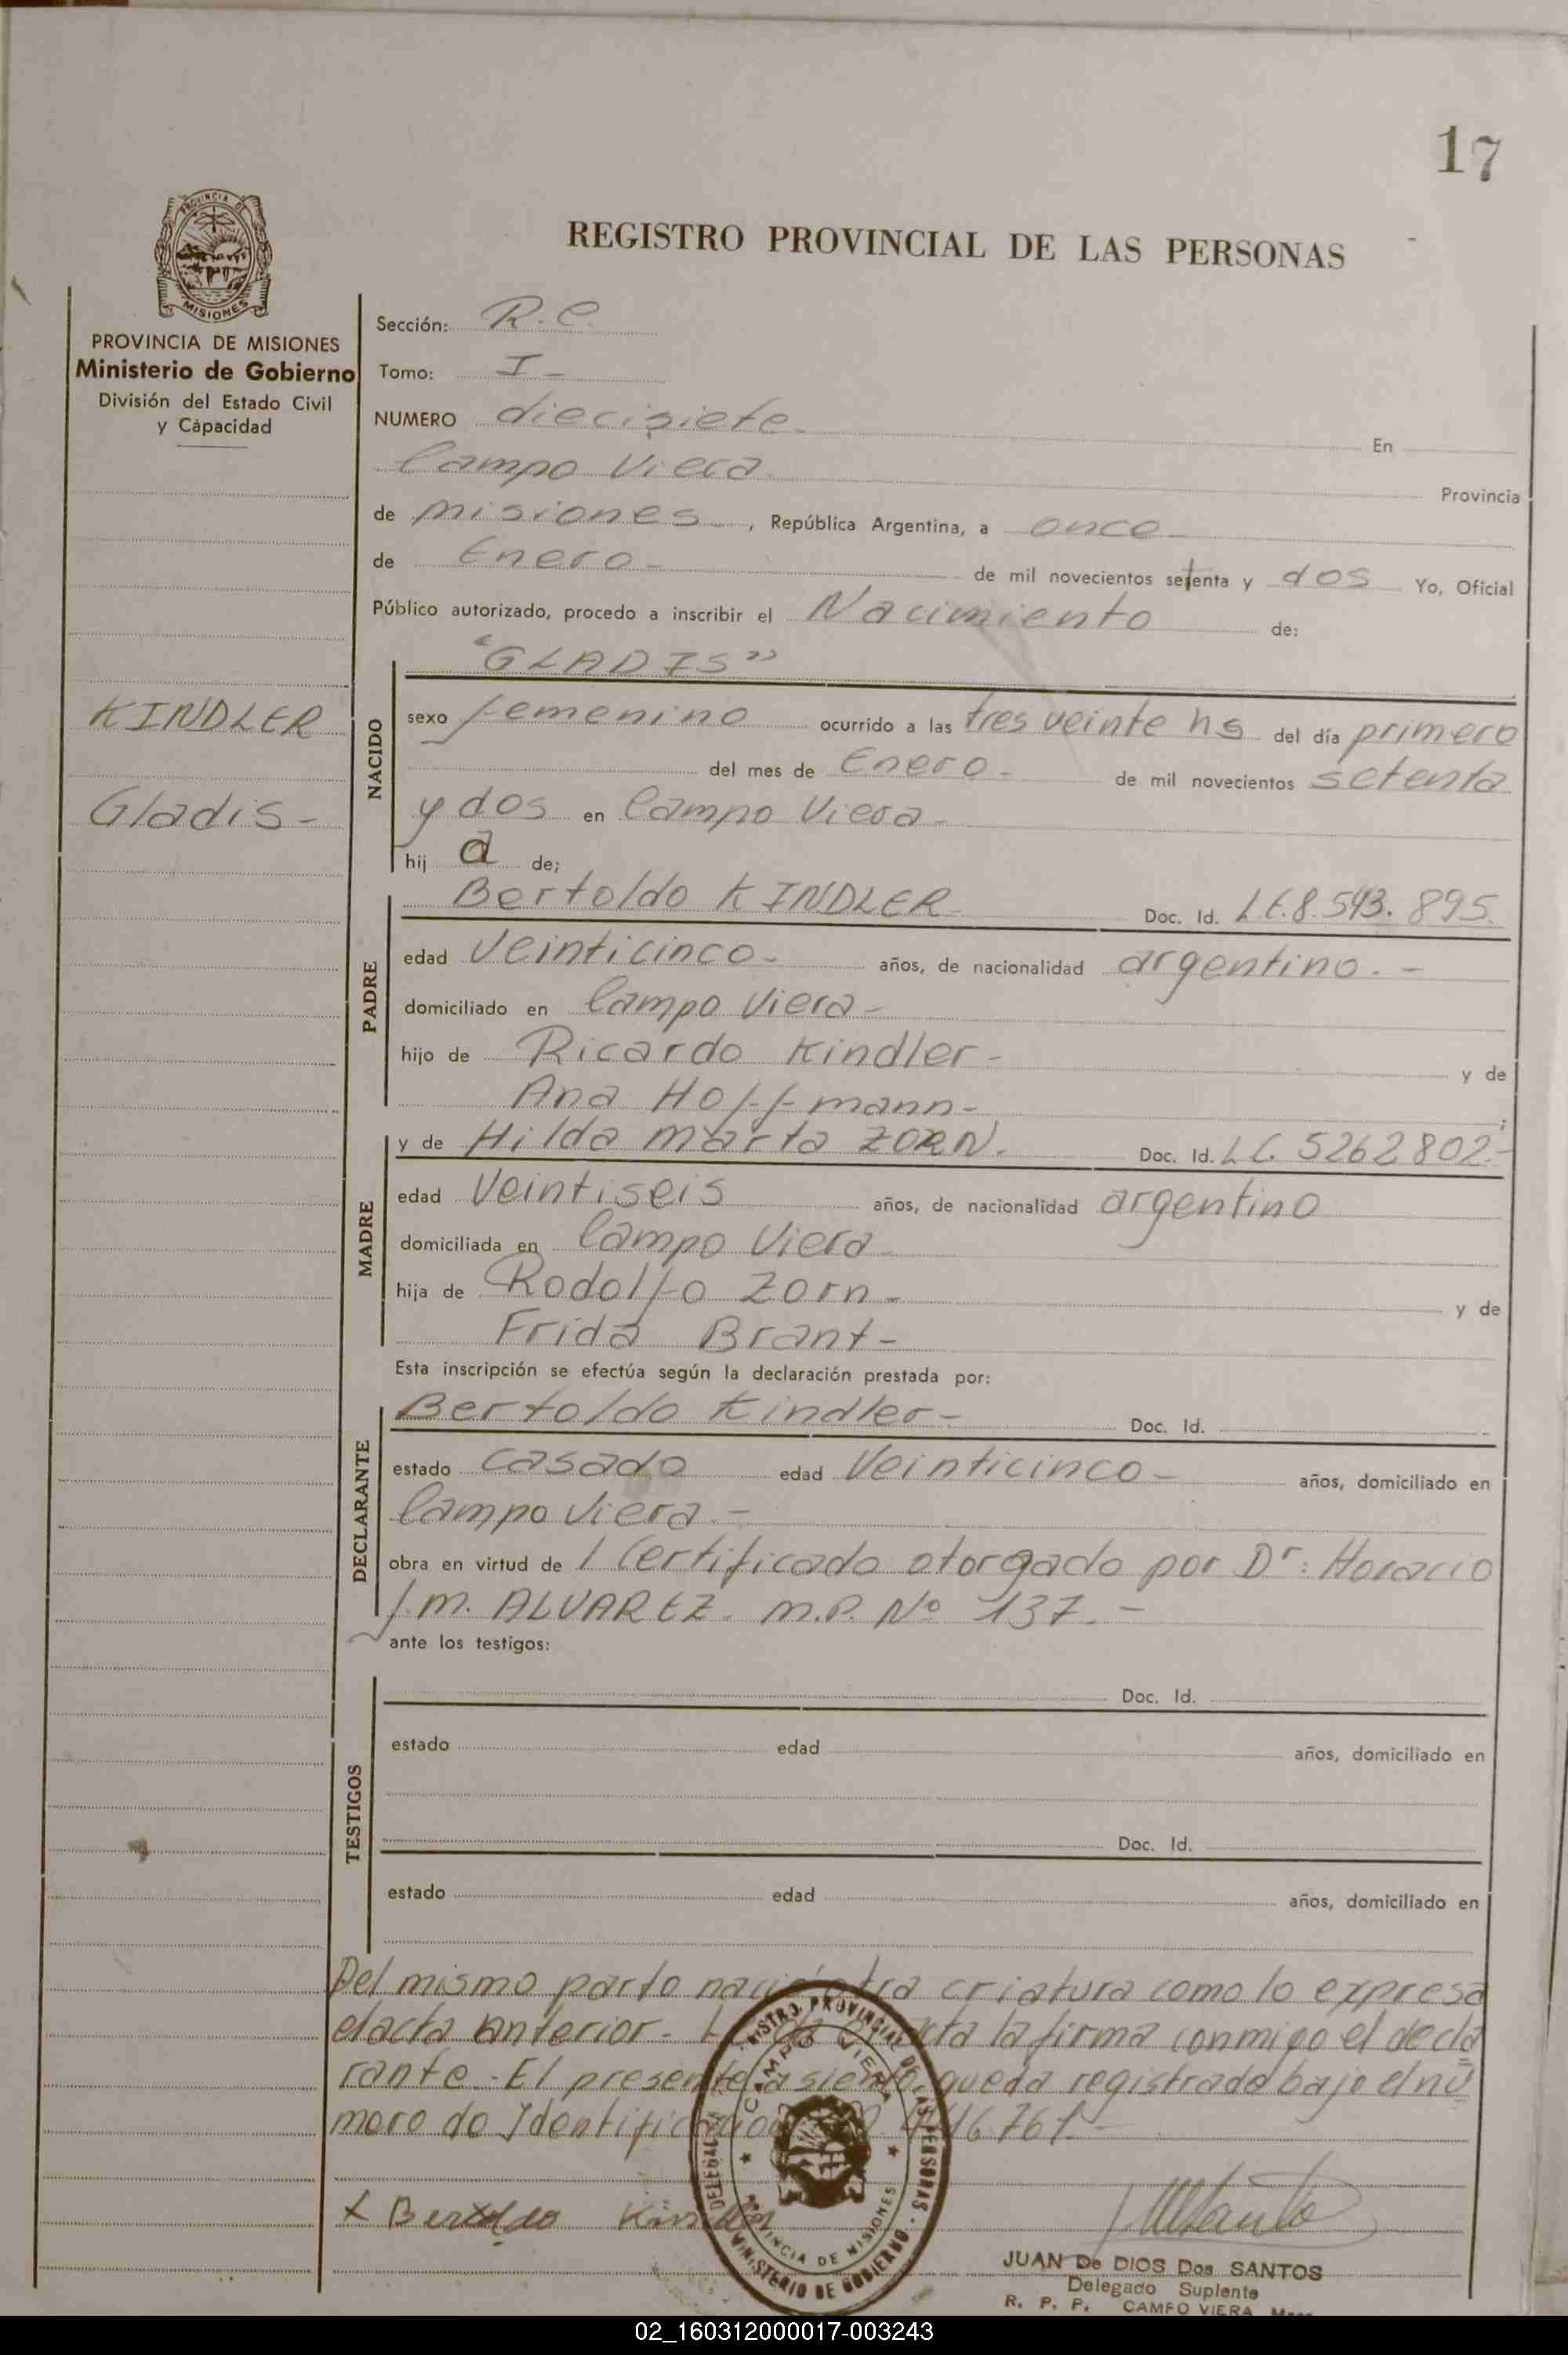 17
REGISTRO PROVINCIAL DE LAS PERSONAS
PROVINCIA DE
MISIONES
PROVINCIA DE MISIONES
Ministerio de Gobierno
División del Estado Civil
y Capacidad
KINDLER
Gladis-
Sección: R.C.
Tomo: I-
NUMERO diecisiete- En
Campo Viera- Provincia
de misiones-, República Argentina, a once-
de Enero- de mil novecientos setenta y dos Yo, Oficial
Público autorizado, procedo a inscribir el Nacimiento de:
"GLADIS"
NACIDO
sexo femenino ocurrido a las tres veinte hs del día primero
del mes de Enero- de mil novecientos setenta
y dos en Campo Viera-
hij a de;
Bertoldo KINDLER- Doc. Id. L.E. 8.543.895.
PADRE
edad Veinticinco- años, de nacionalidad argentino.-
domiciliado en Campo Viera-
hijo de Ricardo Kindler- y de
Ana Hoffmann- ;
y de Hilda marta ZORN. Doc. Id. L.C. 5262802.-
MADRE
edad Veintiseis años, de nacionalidad argentino
domiciliada en Campo Viera-
hija de Rodolfo Zorn- y de
Frida Brant-
Esta inscripción se efectúa según la declaración prestada por:
Bertoldo Kindler- Doc. Id.
DECLARANTE
estado casado edad Veinticinco- años, domiciliado en
Campo Viera.-
obra en virtud de 1 Certificado otorgado por Dr: Horacio
J.M. ALVAREZ. M.P. Nº 137.-
ante los testigos:
Doc. Id.
TESTIGOS
estado edad años, domiciliado en
Doc. Id.
estado edad años, domiciliado en
Del mismo parto nació otra criatura como lo expresa
el acta anterior- acta la firma conmigo el decla
rante-El presente asiento, queda registrado bajo el nú
mero de Identificación
x Bertoldo Kindler
CAMPO VIERA
PROVINCIA DE MISIONES
MINISTERIO DE GOBIERNO
JUAN De DIOS Dos SANTOS
Delegado Suplente
R. P. P. CAMPO VIERA
02_160312000017-003243